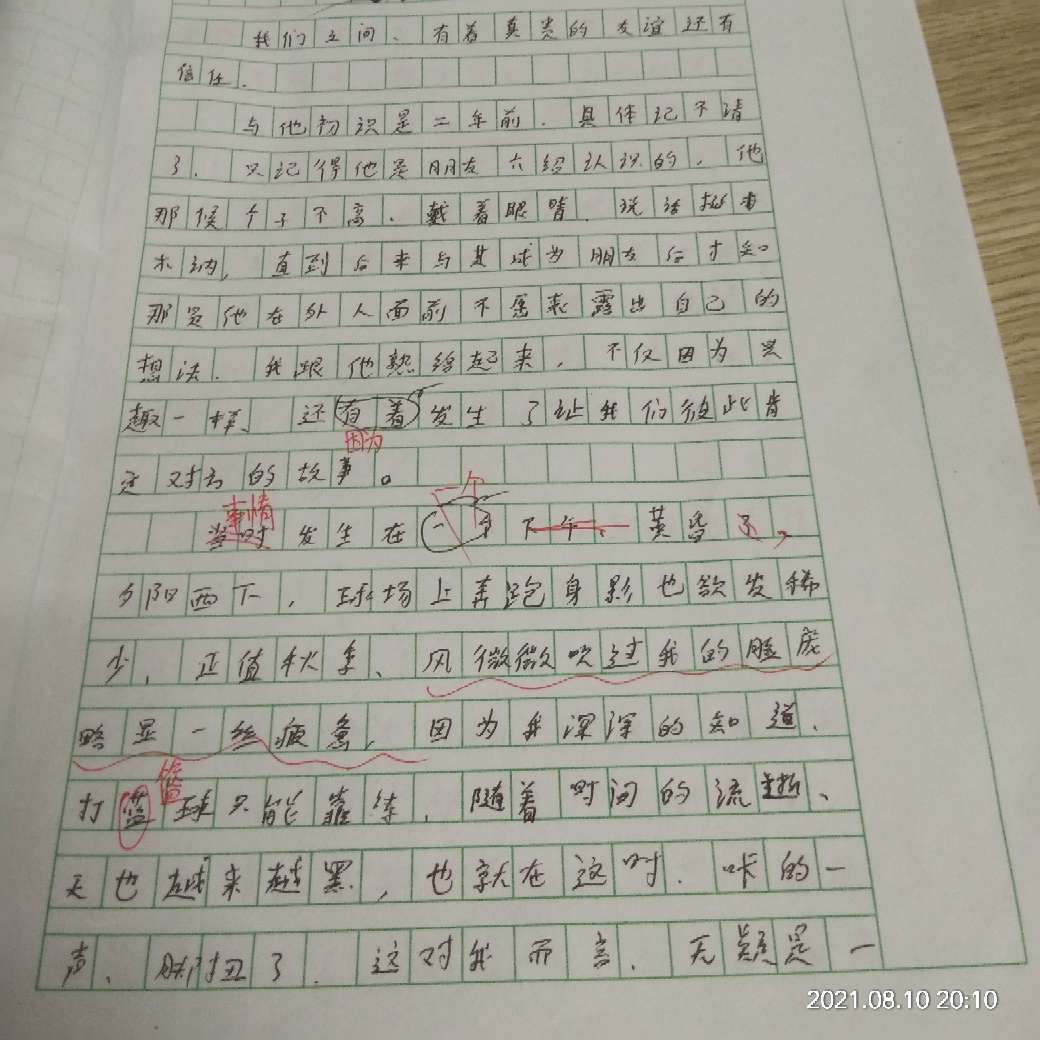 我们之间、有着真贵的友谊还有
信任.
与他初识是二年前.具体记不清
了.只记得他是朋友介绍认识的.他
那候个子不高、戴着眼睛.说话
木讷,直到后来与其成为朋友后才知
那是他在外人面前不愿表露出自己的
想法.我跟他熟络起来,不仅因为兴
趣一样、还有着发生了让我们彼此肯
因为
定对方的故事。
事情 一个
当时发生在一个下午、黄昏了,
夕阳西下,球场上奔跑身影也欲发稀
少,正值秋季、风微微吹过我的脸庞
略显一丝疲惫,因为我深深的知道、
篮
打蓝球只能靠练,随着时间的流逝、
天也越来越黑,也就在这时.咔的一
声、脚扭了.这对我而言.无疑是一
2021.08.10 20:10